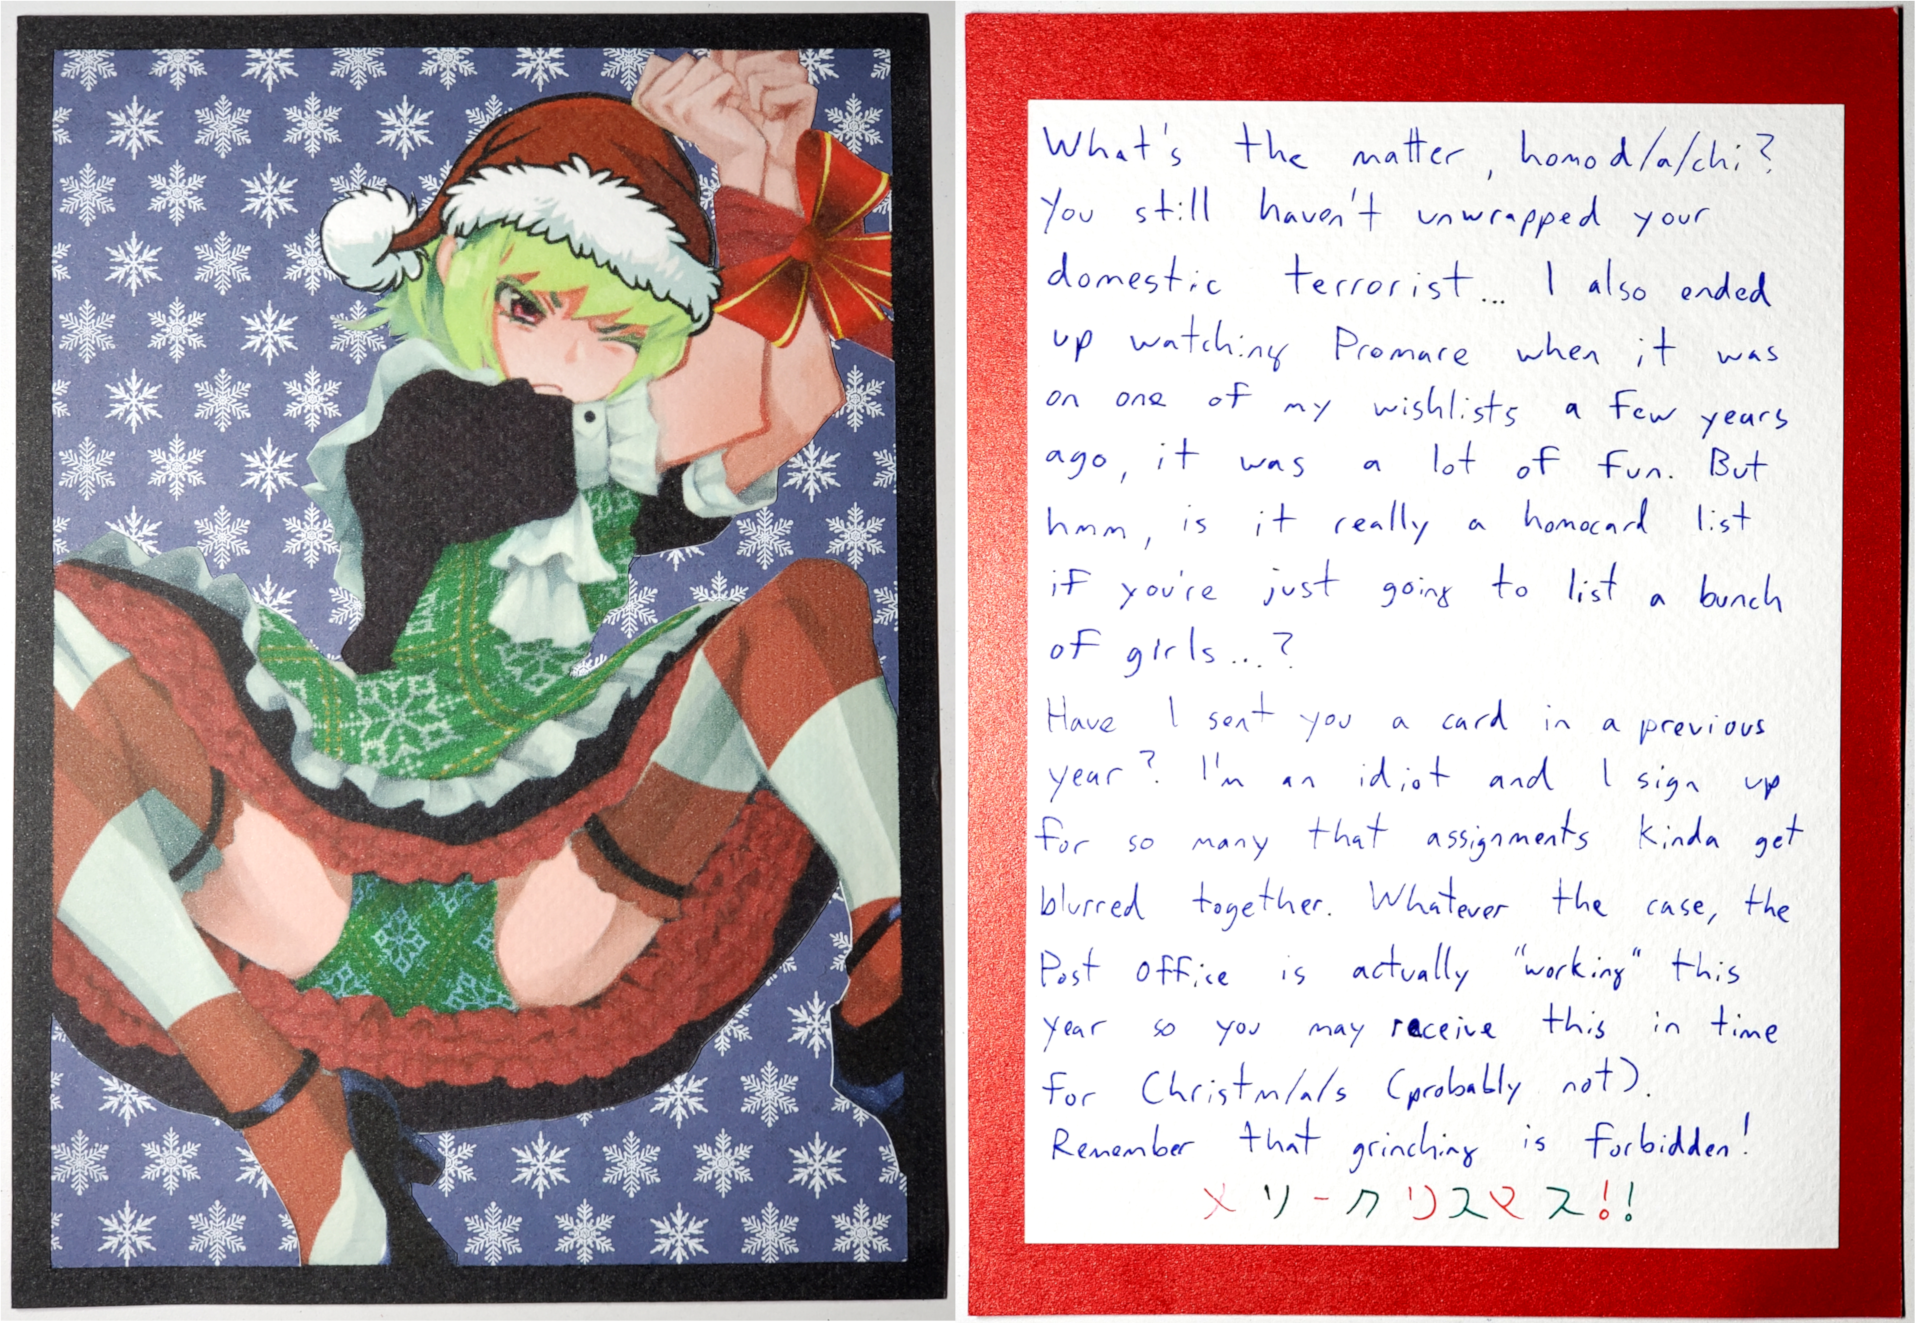 What's the matter, homod/a/chi?
You still haven't unwrapped your
domestic terrorist... I also ended
up watching Promare when it was
on one of my wishlists a few years
ago, it was a lot of fun. But
hmm, is it really a homocard list
if you're just going to list a bunch
of girls...?
Have I sent you a card in a previous
year? I'm an idiot and I sign up
for so many that assignments kinda get
blurred together. Whatever the case, the
Post office is actually "working" this
year so you may receive this in time
for Christm/a/s (probably not).
Remember that grinching is forbidden!
メリークリスマス!!